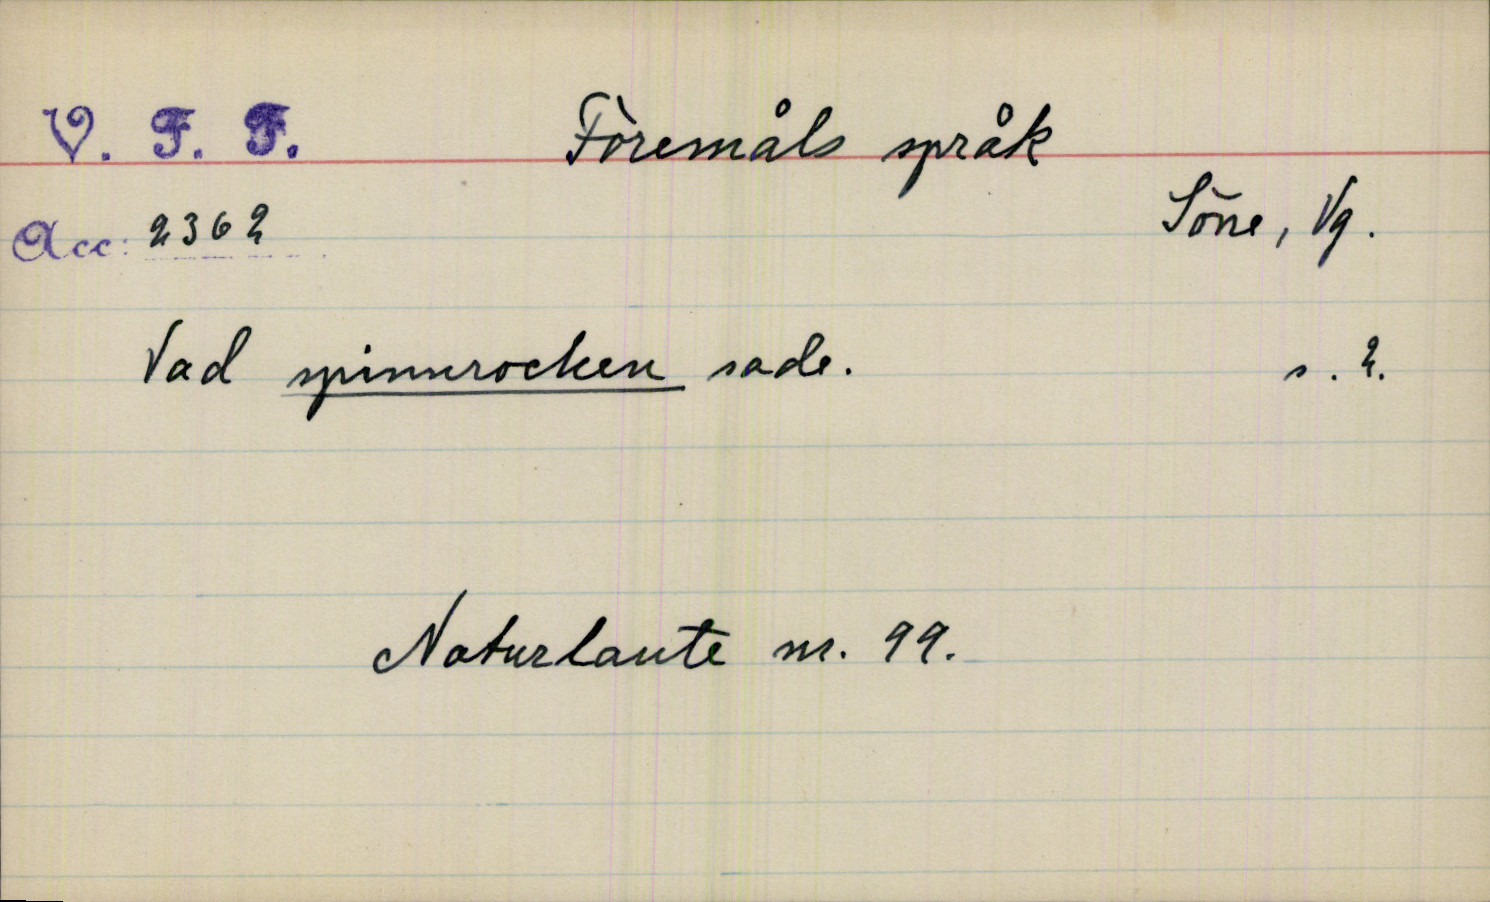 V. F. F. Föremåls språk
Söne, Vg.
Acc: 2362
Vad spinnrocken sade. s. 2.
Naturlaute nr. 99.